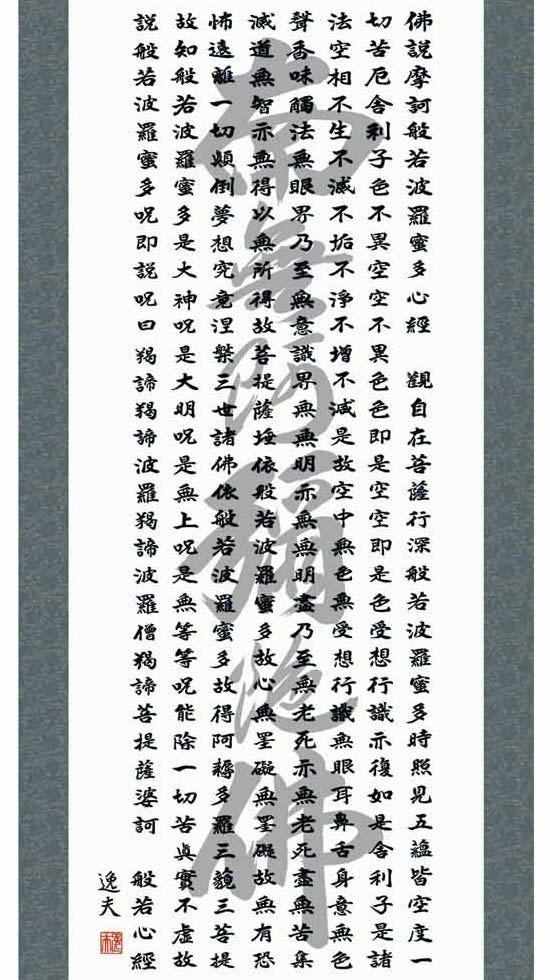 佛說摩訶般若波羅蜜多心經　觀自在菩薩行深般若波羅蜜多時照見五蘊皆空度一
切苦厄舍利子色不異空空不異色色即是空空即是色受想行識亦復如是舍利子是諸
法空相不生不滅不垢不淨不增不減是故空中無色無受想行識無眼耳鼻舌身意無色
聲香味觸法無眼界乃至無意識界無無明亦無無明盡乃至無老死亦無老死盡無苦集
滅道無智亦無得以無所得故菩提薩埵依般若波羅蜜多故心無罣礙無罣礙故無有恐
怖遠離一切顛倒夢想究竟涅槃三世諸佛依般若波羅蜜多故得阿耨多羅三藐三菩提
故知般若波羅蜜多是大神呪是大明呪是無上呪是無等等呪能除一切苦眞實不虛故
說般若波羅蜜多呪即說呪曰羯諦羯諦波羅羯諦波羅僧羯諦菩提薩婆訶　般若心經
逸夫
南無阿彌陀佛